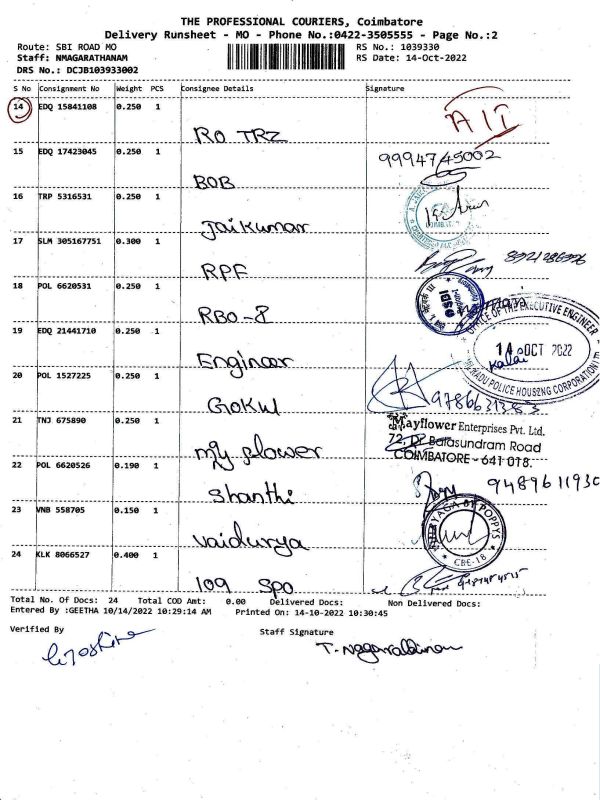 THE PROFESSIONAL COURIERS, Coimbatore
Delivery Runsheet - MO - Phone No.:0422-3505555 - Page No.:2
Route: SBI ROAD MO
RS No.: 1039330
Staff: NMAGARATHANAM
RS Date: 14-Oct-2022
DRS No.: DCJB103933002
S No Consignment No Weight PCS Consignee Details Signature
14 EDQ 15841108 0.250 1
RO TRZ
AIT
15 EDQ 17423045 0.250 1
BOB
9994745002
16 TRP 5316531 0.250 1
Jaikumar
17 SLM 305167751 0.300 1
RPF
18 POL 6620531 0.250 1
RBO-8
19 EDQ 21441710 0.250 1
Engineer
OFFICE OF THE EXECUTIVE ENGINEER
14 OCT 2022
Kalai
POLICE HOUSING CORPORATION
20 POL 1527225 0.250 1
Gokul
9786631383
21 TNJ 675890 0.250 1
my flower
Mayflower Enterprises Pvt. Ltd.
72, Balasundram Road
COIMBATORE - 641 018.
22 POL 6620526 0.190 1
Shanthi
9489611930
23 VNB 558705 0.150 1
Vaidurya
BY POPPYS
CBE-18
24 KLK 8066527 0.400 1
109 SPO
Total No. Of Docs: 24 Total COD Amt: 0.00 Delivered Docs: Non Delivered Docs:
Entered By :GEETHA 10/14/2022 10:29:14 AM Printed On: 14-10-2022 10:30:45
Verified By
Staff Signature